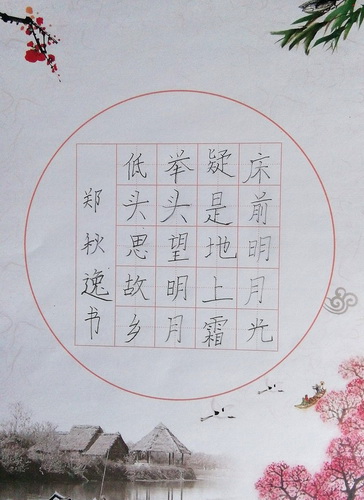 床前明月光
疑是地上霜
举头望明月
低头思故乡
郑秋逸书